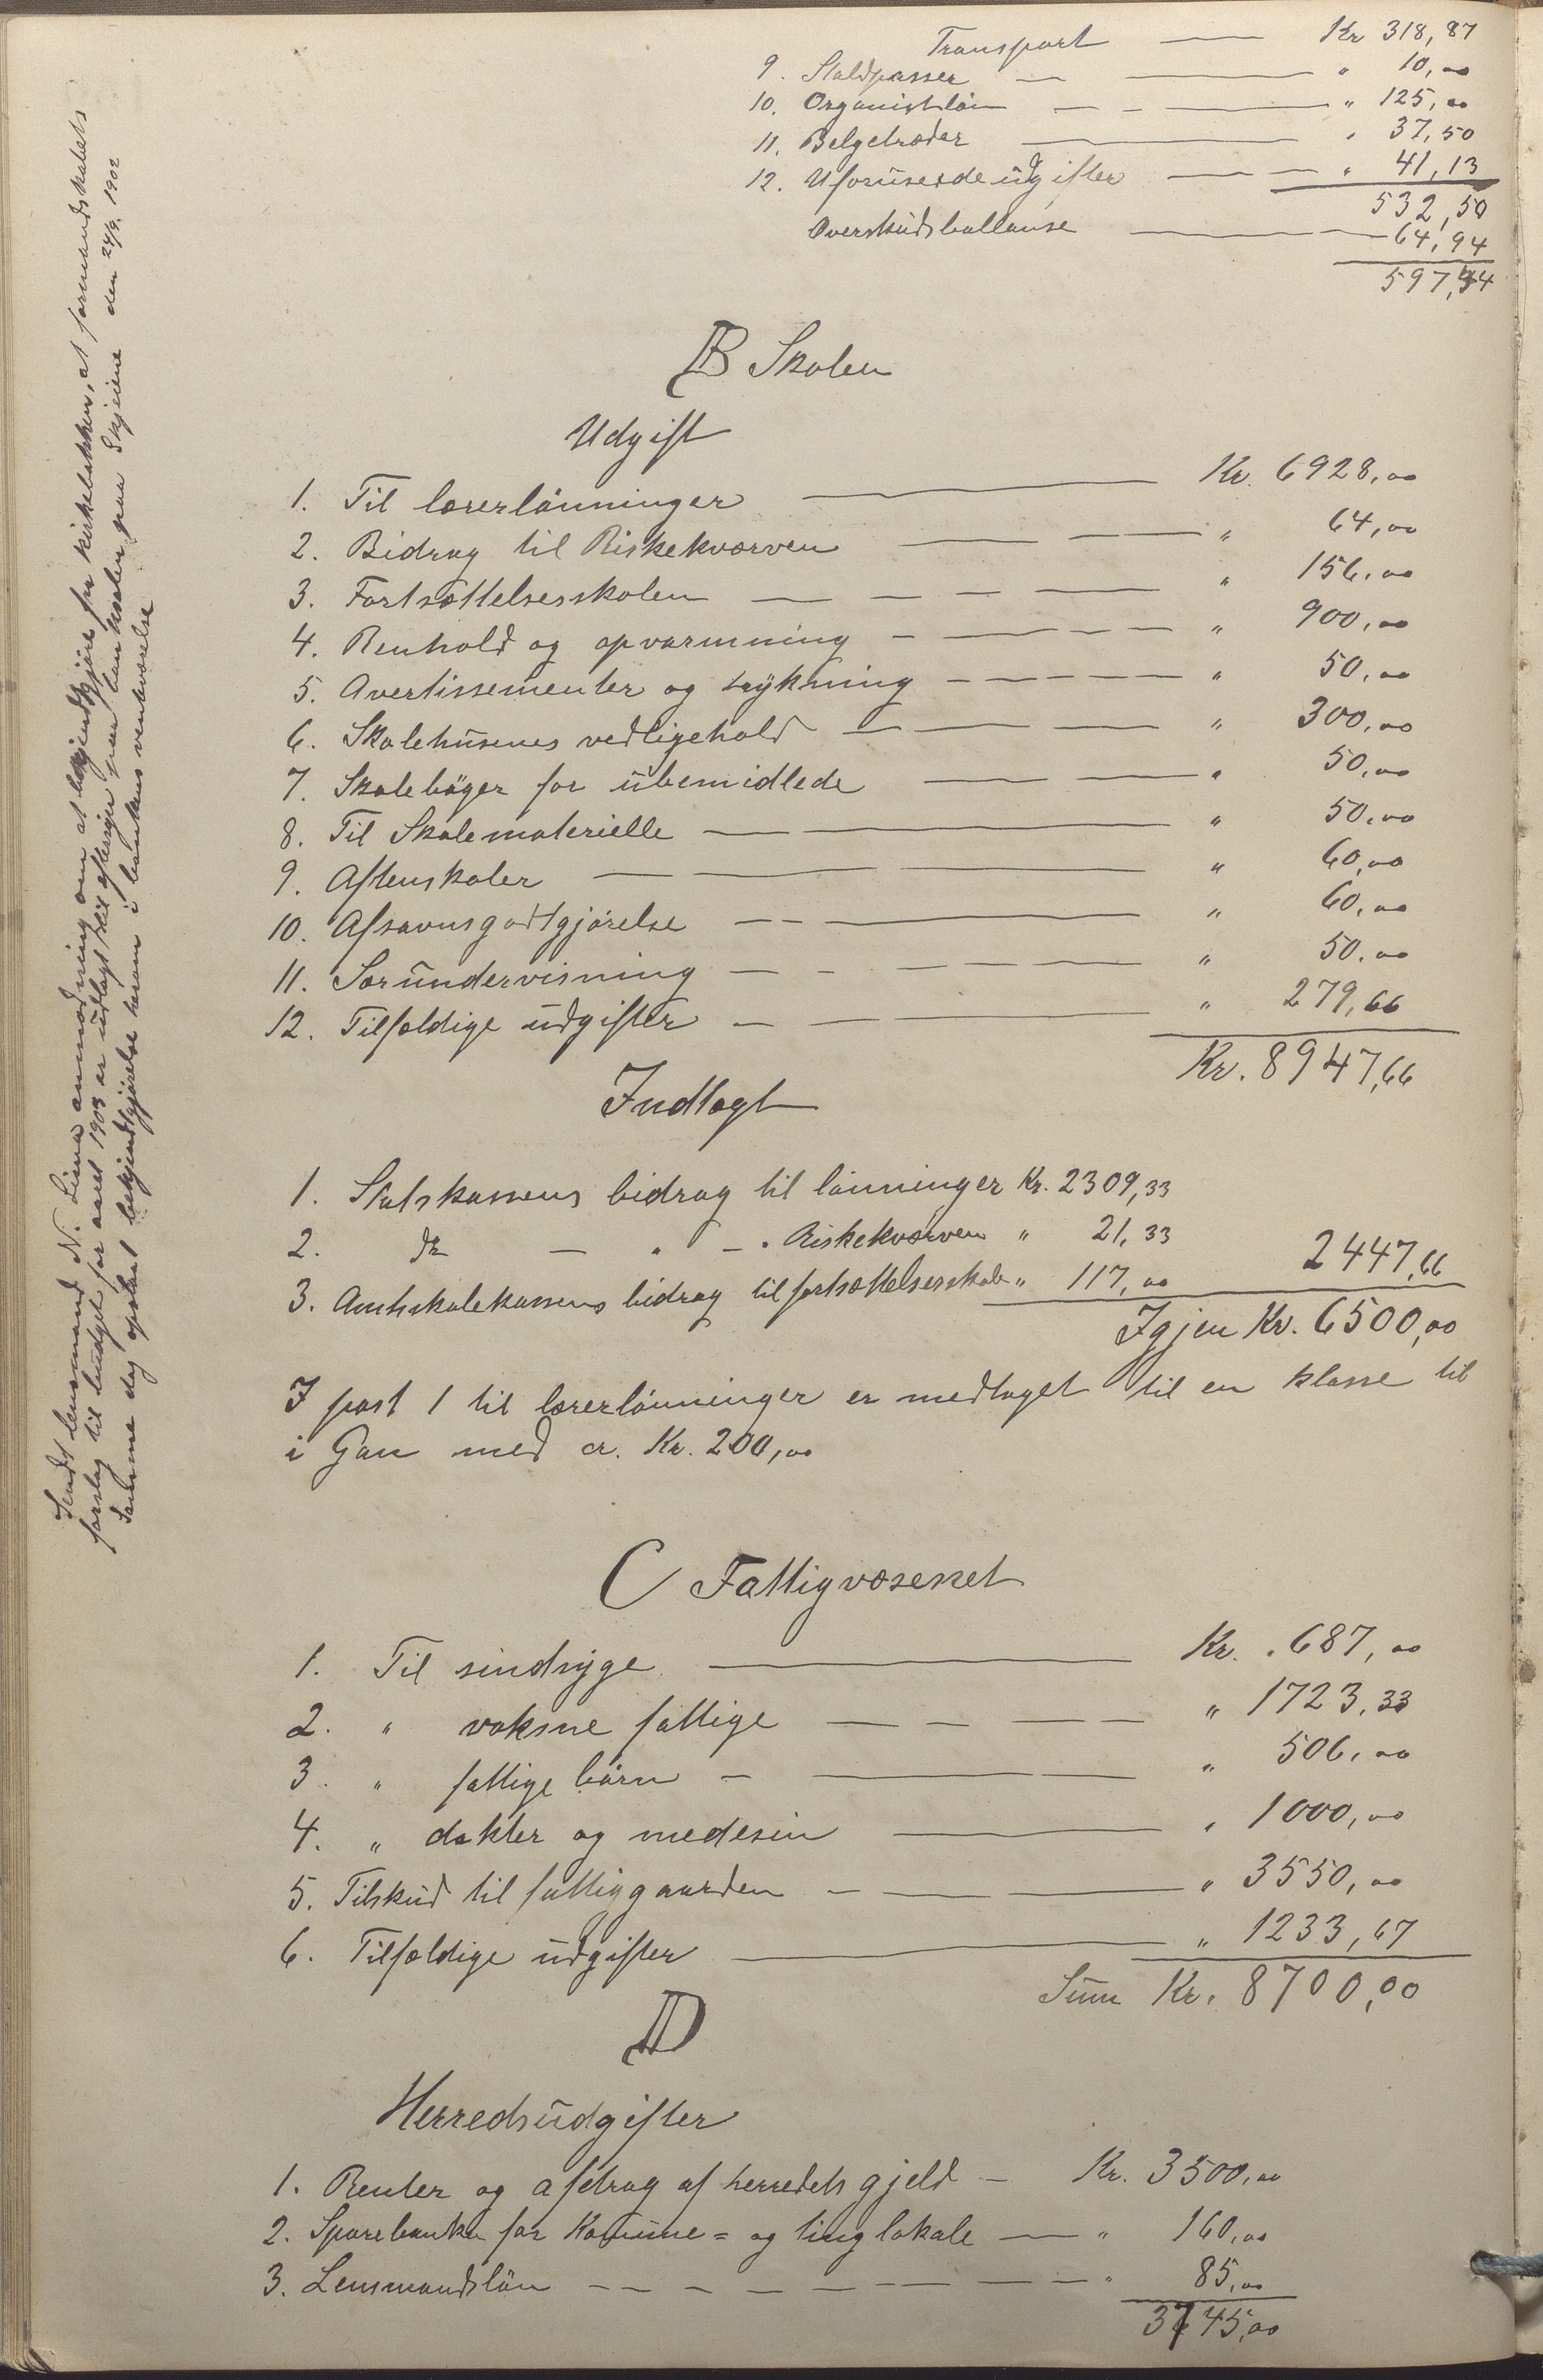 Transport — Kr 318,87
9. Staldpasser — — " 10,00
10. Organistløn — — — " 125,00
11. Belgetræder — " 37,50
12. Uforuseede udgifter — — " 41,13
532,50
Overskudsballanse — — 64,94
597,44
B Skolen
Udgift
1. Til lærerlønninger — Kr. 6928,00
2. Bidrag til Riskekværven — — — " 64,00
3. Fortsættelsesskolen — — — — " 156,00
4. Renhold og opvarmning — — — — " 900,00
5. Avertissementer og trykning — — — — — " 50,00
6. Skolehusenes vedligehold — — — — " 300,00
7. Skolebøger for ubemidlede — — " 50,00
8. Til Skolematerielle — — — " 50,00
9. Aftenskoler — — — " 60,00
10. Afsavnsgodtgjørelse — — — " 60,00
11. Særundervisning — — — — — " 50,00
12. Tilfældige udgifter — — — " 279,66
Kr. 8947,66
Indtægt
1. Statskassens bidrag til lønninger Kr. 2309,33
2. do — " — " Riskekværven " 21,33
3. Amtsskolekassens bidrag til fortsættelsesskole " 117,00 2447,66
Igjen Kr. 6500,00
I post 1 til lærerlønninger er medtaget til en klasse til
i Gan med cr. Kr. 200,00
C Fattigvæsenet
1. Til sindsyge — Kr. 687,00
2. " voksne fattige — — — — " 1723,33
3. " fattige børn — — — " 506,00
4. " dokter og medesin — — " 1000,00
5. Tilskud til fattiggaarden — — — " 3550,00
6. Tilfældige udgifter — " 1233,67
Sum Kr. 8700,00
D
Herredsudgifter
1. Renter og afdrag af herredets gjeld — Kr. 3500,00
2. Sparebanken for Komune= og tinglokale — " 160,00
3. Lensmandsløn — — — — — — — — " 85,00
3745,00
Sendt lensmand N. Lima anmodning om at bekjendtgjøre fra kirkebakken, at formandskabets
forslag til budget for aaret 1903 er udlagt til eftersyn paa banklokalen paa Skjeiene den 24/9 1902
Samme dag opslaat bekjendtgjørelse herom i bankens venteværelse